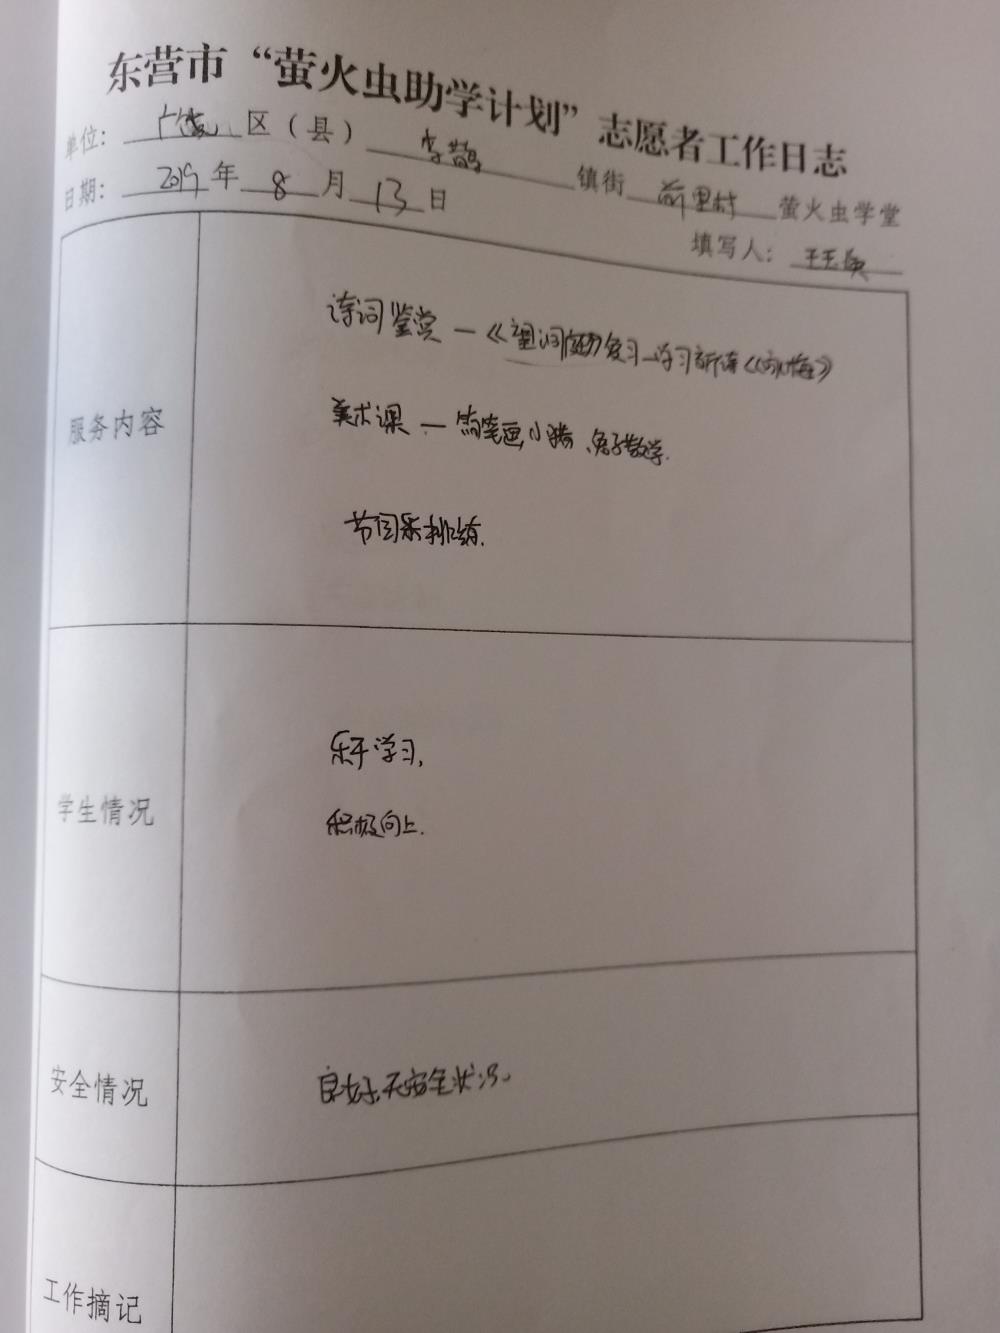 东营市“萤火虫助学计划”志愿者工作日志
单位：广饶区（县）李鹊镇街前里村萤火虫学堂
日期：2019年8月13日
填写人：
服务内容
诗词鉴赏—《望洞庭》复习—学习新诗《咏梅》
美术课—简笔画小猪、兔子教学.
节目乐排练.
学生情况
乐于学习，
积极向上.
安全情况
良好，无安全状况。
工作摘记